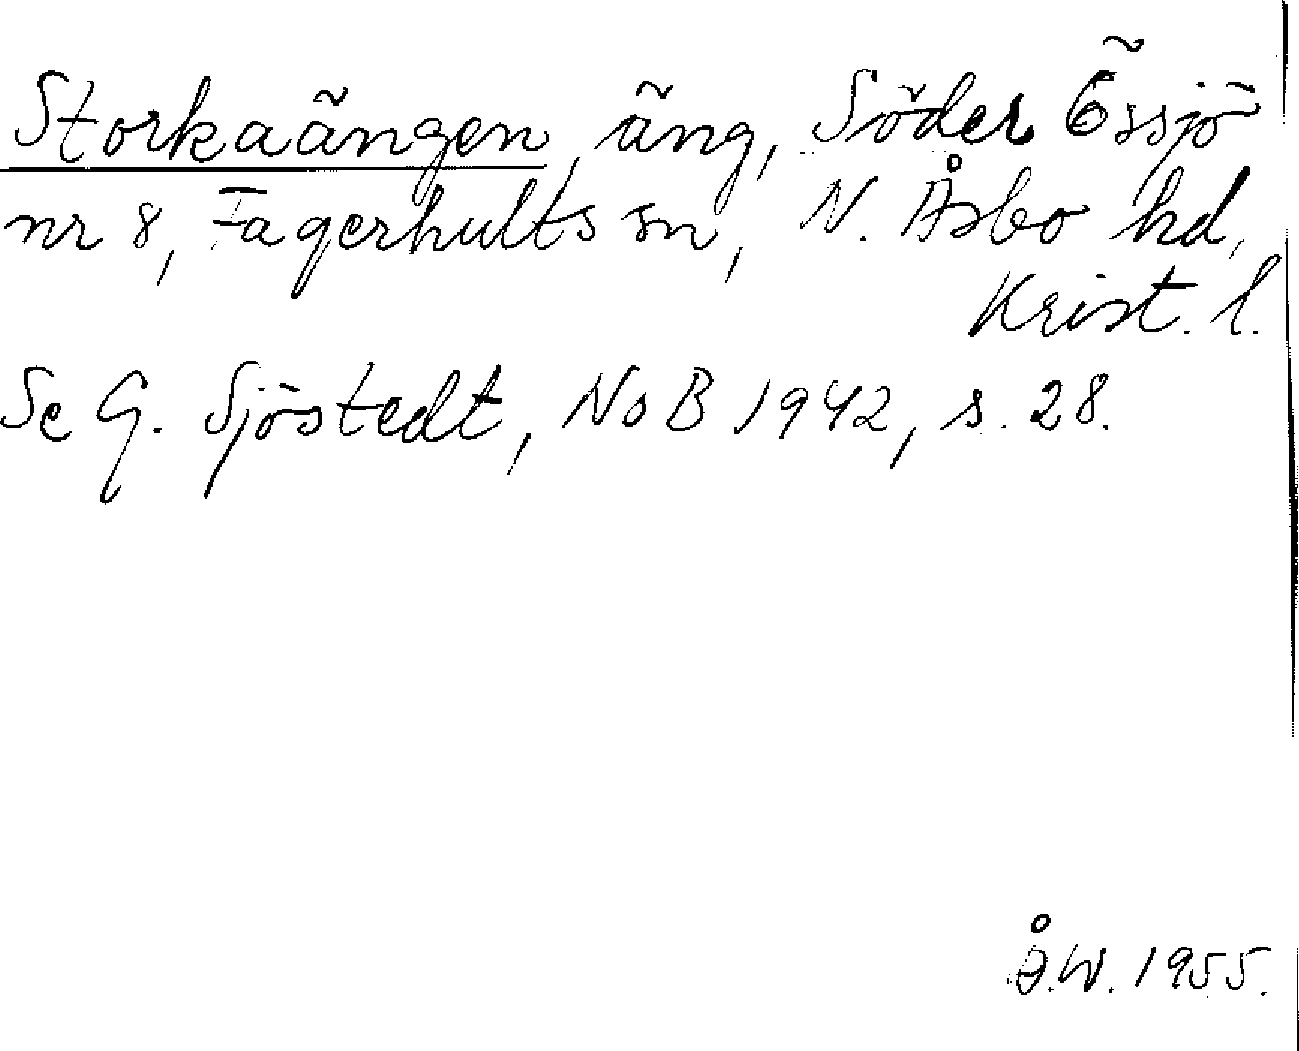 Storkaängen, äng, Söder Össjö
nr 8, Fagerhults sn, N. Åsbo hd,
Krist. l.
Se G. Sjöstedt, NoB 1942, s. 28.
Å.W. 1955.